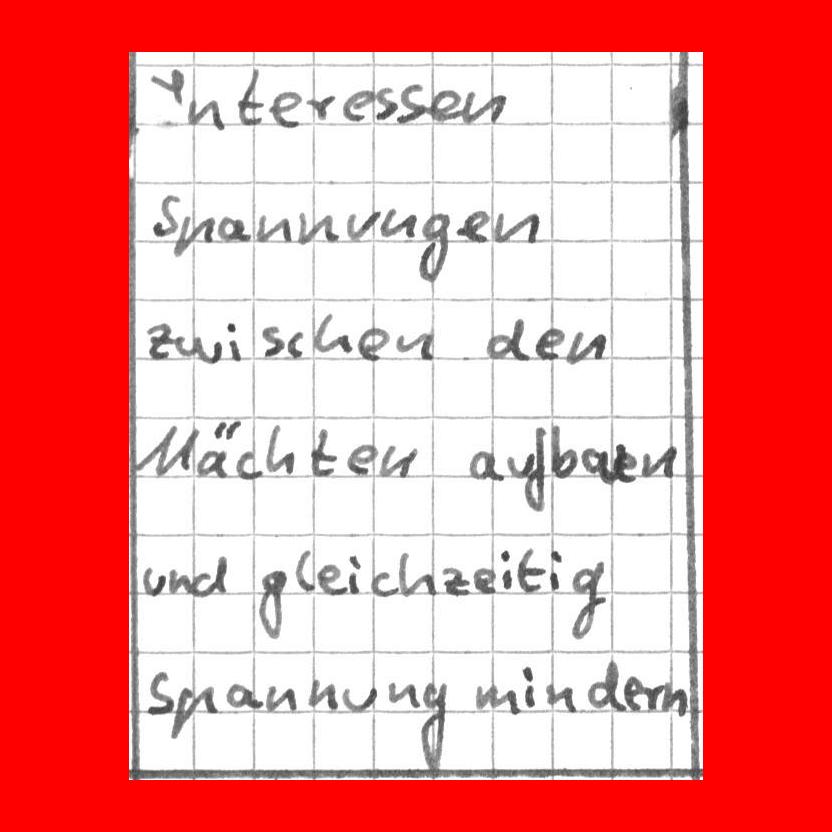 interessen
Spannungen
zwischen den
Mächten aufbauen
und gleichzeitig
Spannung mindern